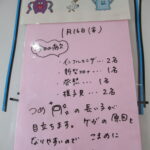 1月26日(金)
インフルエンザ … 2名
新型コロナ … 1名
発熱 … 1名
様子見 … 2名
つめ の長い子が
目立ちます。ケガの原因と
なりやすいので こまめに